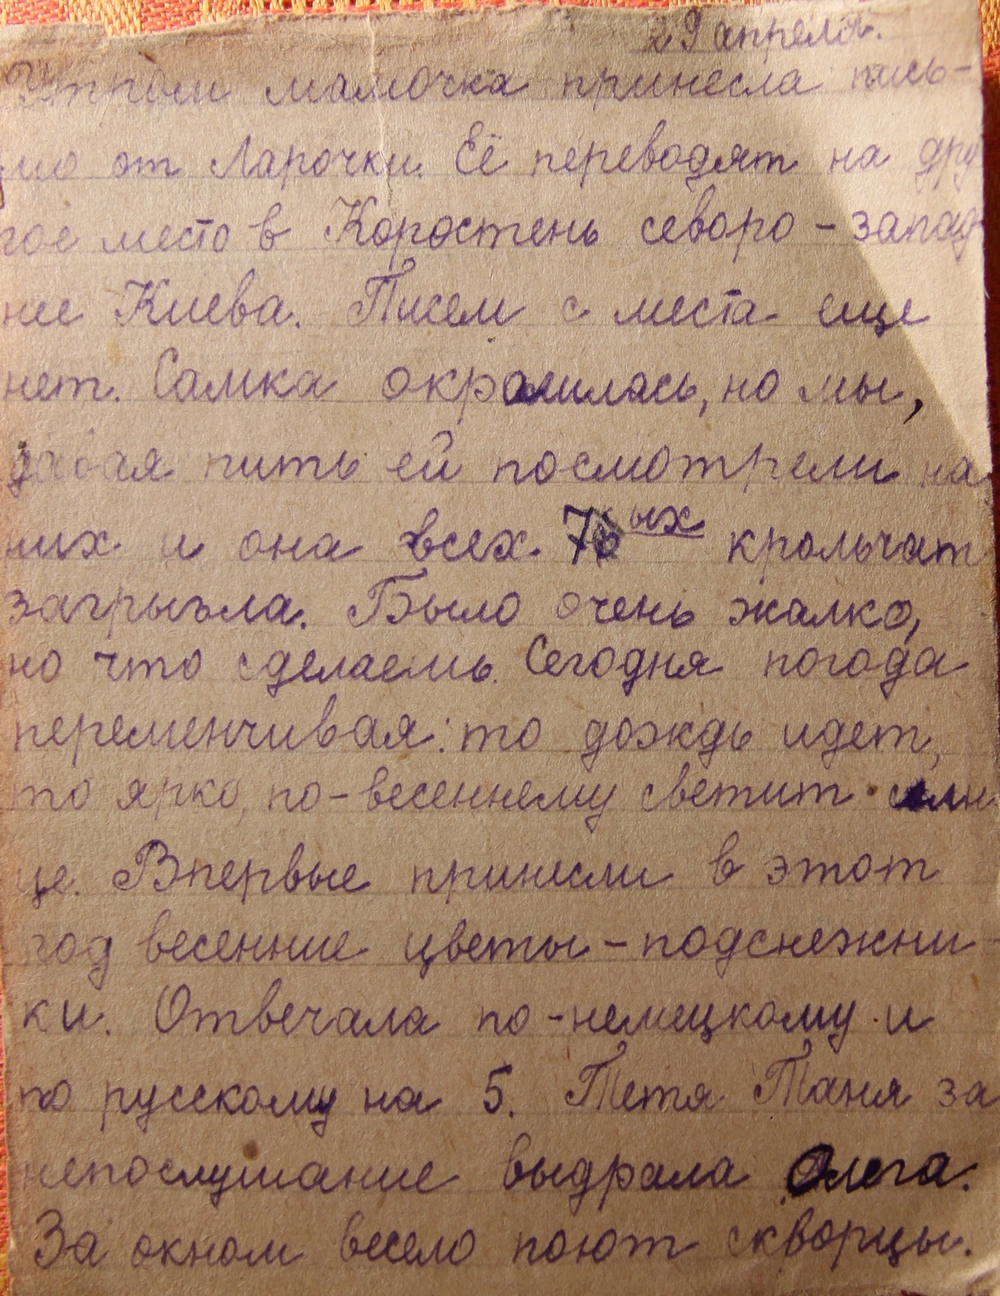 29 апреля.
Утром мамочка принесла пись-
мо от Ларочки. Её переводят на дру
гое место в Коростень северо-запад
нее Киева. Писем с места еще
нет. Самка окролилась, но мы,
давая пить ей посмотрели на
них и она всех 7ых крольчат
загрызла. Было очень жалко,
но что сделаешь. Сегодня погода
переменчивая: то дождь идет,
то ярко, по-весеннему светит солн
це. Впервые принесли в этот
год весенние цветы-подснежни
ки. Отвечала по-немецкому и
по русскому на 5. Тетя Таня за
непослушание выдрала Олега.
За окном весело поют скворцы.